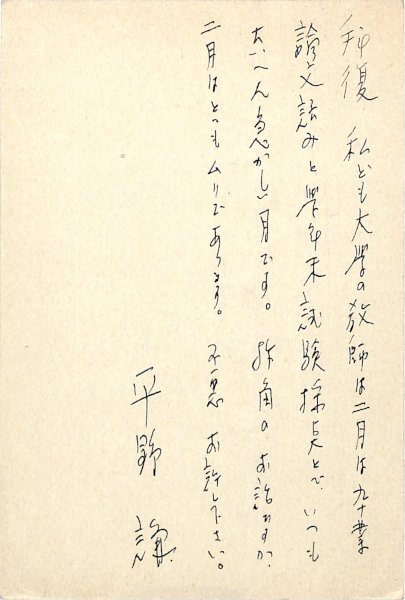 拝復 私ども大学の教師は二月は卆業
論文読みと學年末試験採点とで いつも
たいへん急がしい月です。折角のお話ですが、
二月はとてもムリであります。不悪 お許し下さい。
平野 謙